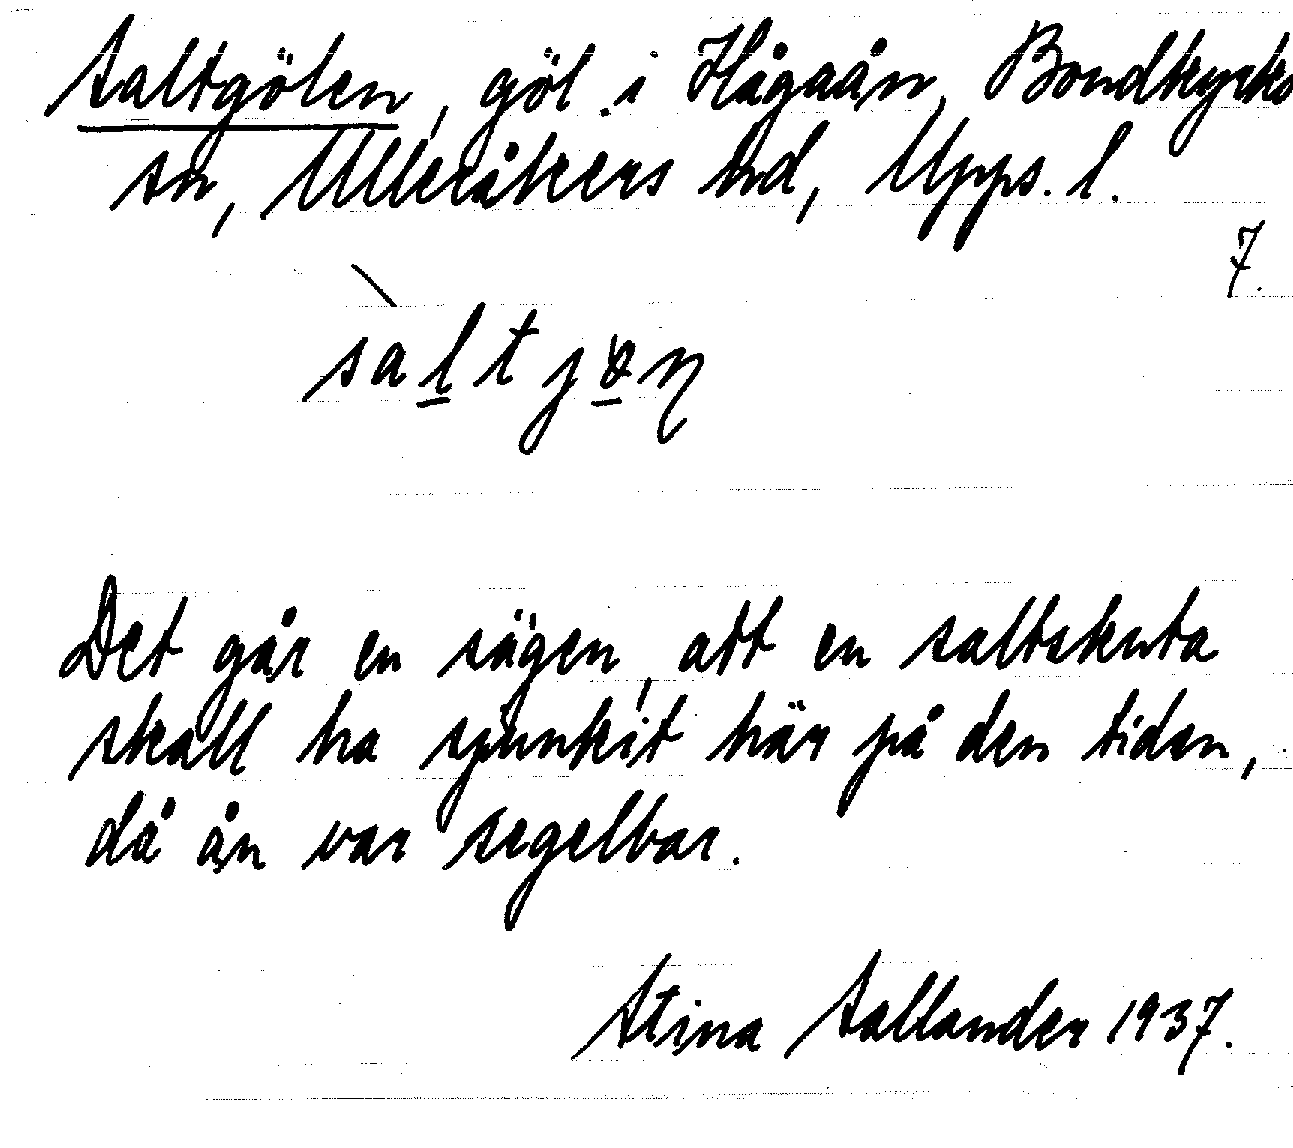 Saltgölen, göl i Hågaån, Bondkyrko
sn, Ulleråkers hd, Upps. l.
7.
sàltjøn
Det går en sägen, att en saltskuta
skall ha sjunkit här på den tiden,
då ån var segelbar.
Stina Sallander 1937.